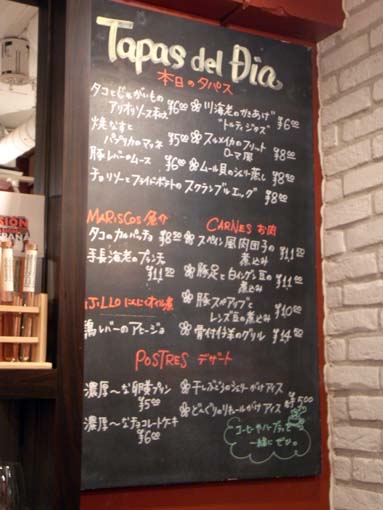 Tapas del Dia
本日のタパス
タコとじゃがいもの
アリオリソース和え ¥600
川海老のかきあげ
"トルティジャス" ¥600
焼なすと
パプリカのマリネ ¥500
スルメイカのフリット
ローマ風 ¥800
豚レバーのムース ¥600
ムール貝のシェリー蒸し ¥800
チョリソーとフライドポテトのスクランブルエッグ ¥800
MARISCOS 魚介
タコのカルパッチョ ¥800
手長海老のプランチャ
CARNES お肉
スペイン風肉団子の
煮込み
豚足と白いんげん豆の
煮込み
豚スペアリブと
レンズ豆の煮込み
骨付仔羊のグリル
AJILLO にんにくオイル煮
鶏レバーのアヒージョ
POSTRES デザート
濃厚〜な卵黄プリン
¥500
干しぶどうのシェリーがけアイス
濃厚〜なチョコレートケーキ
¥600
どんぐりのリキュールがけアイス
各¥500
コーヒーやハーブティーも
一緒にぜひ。